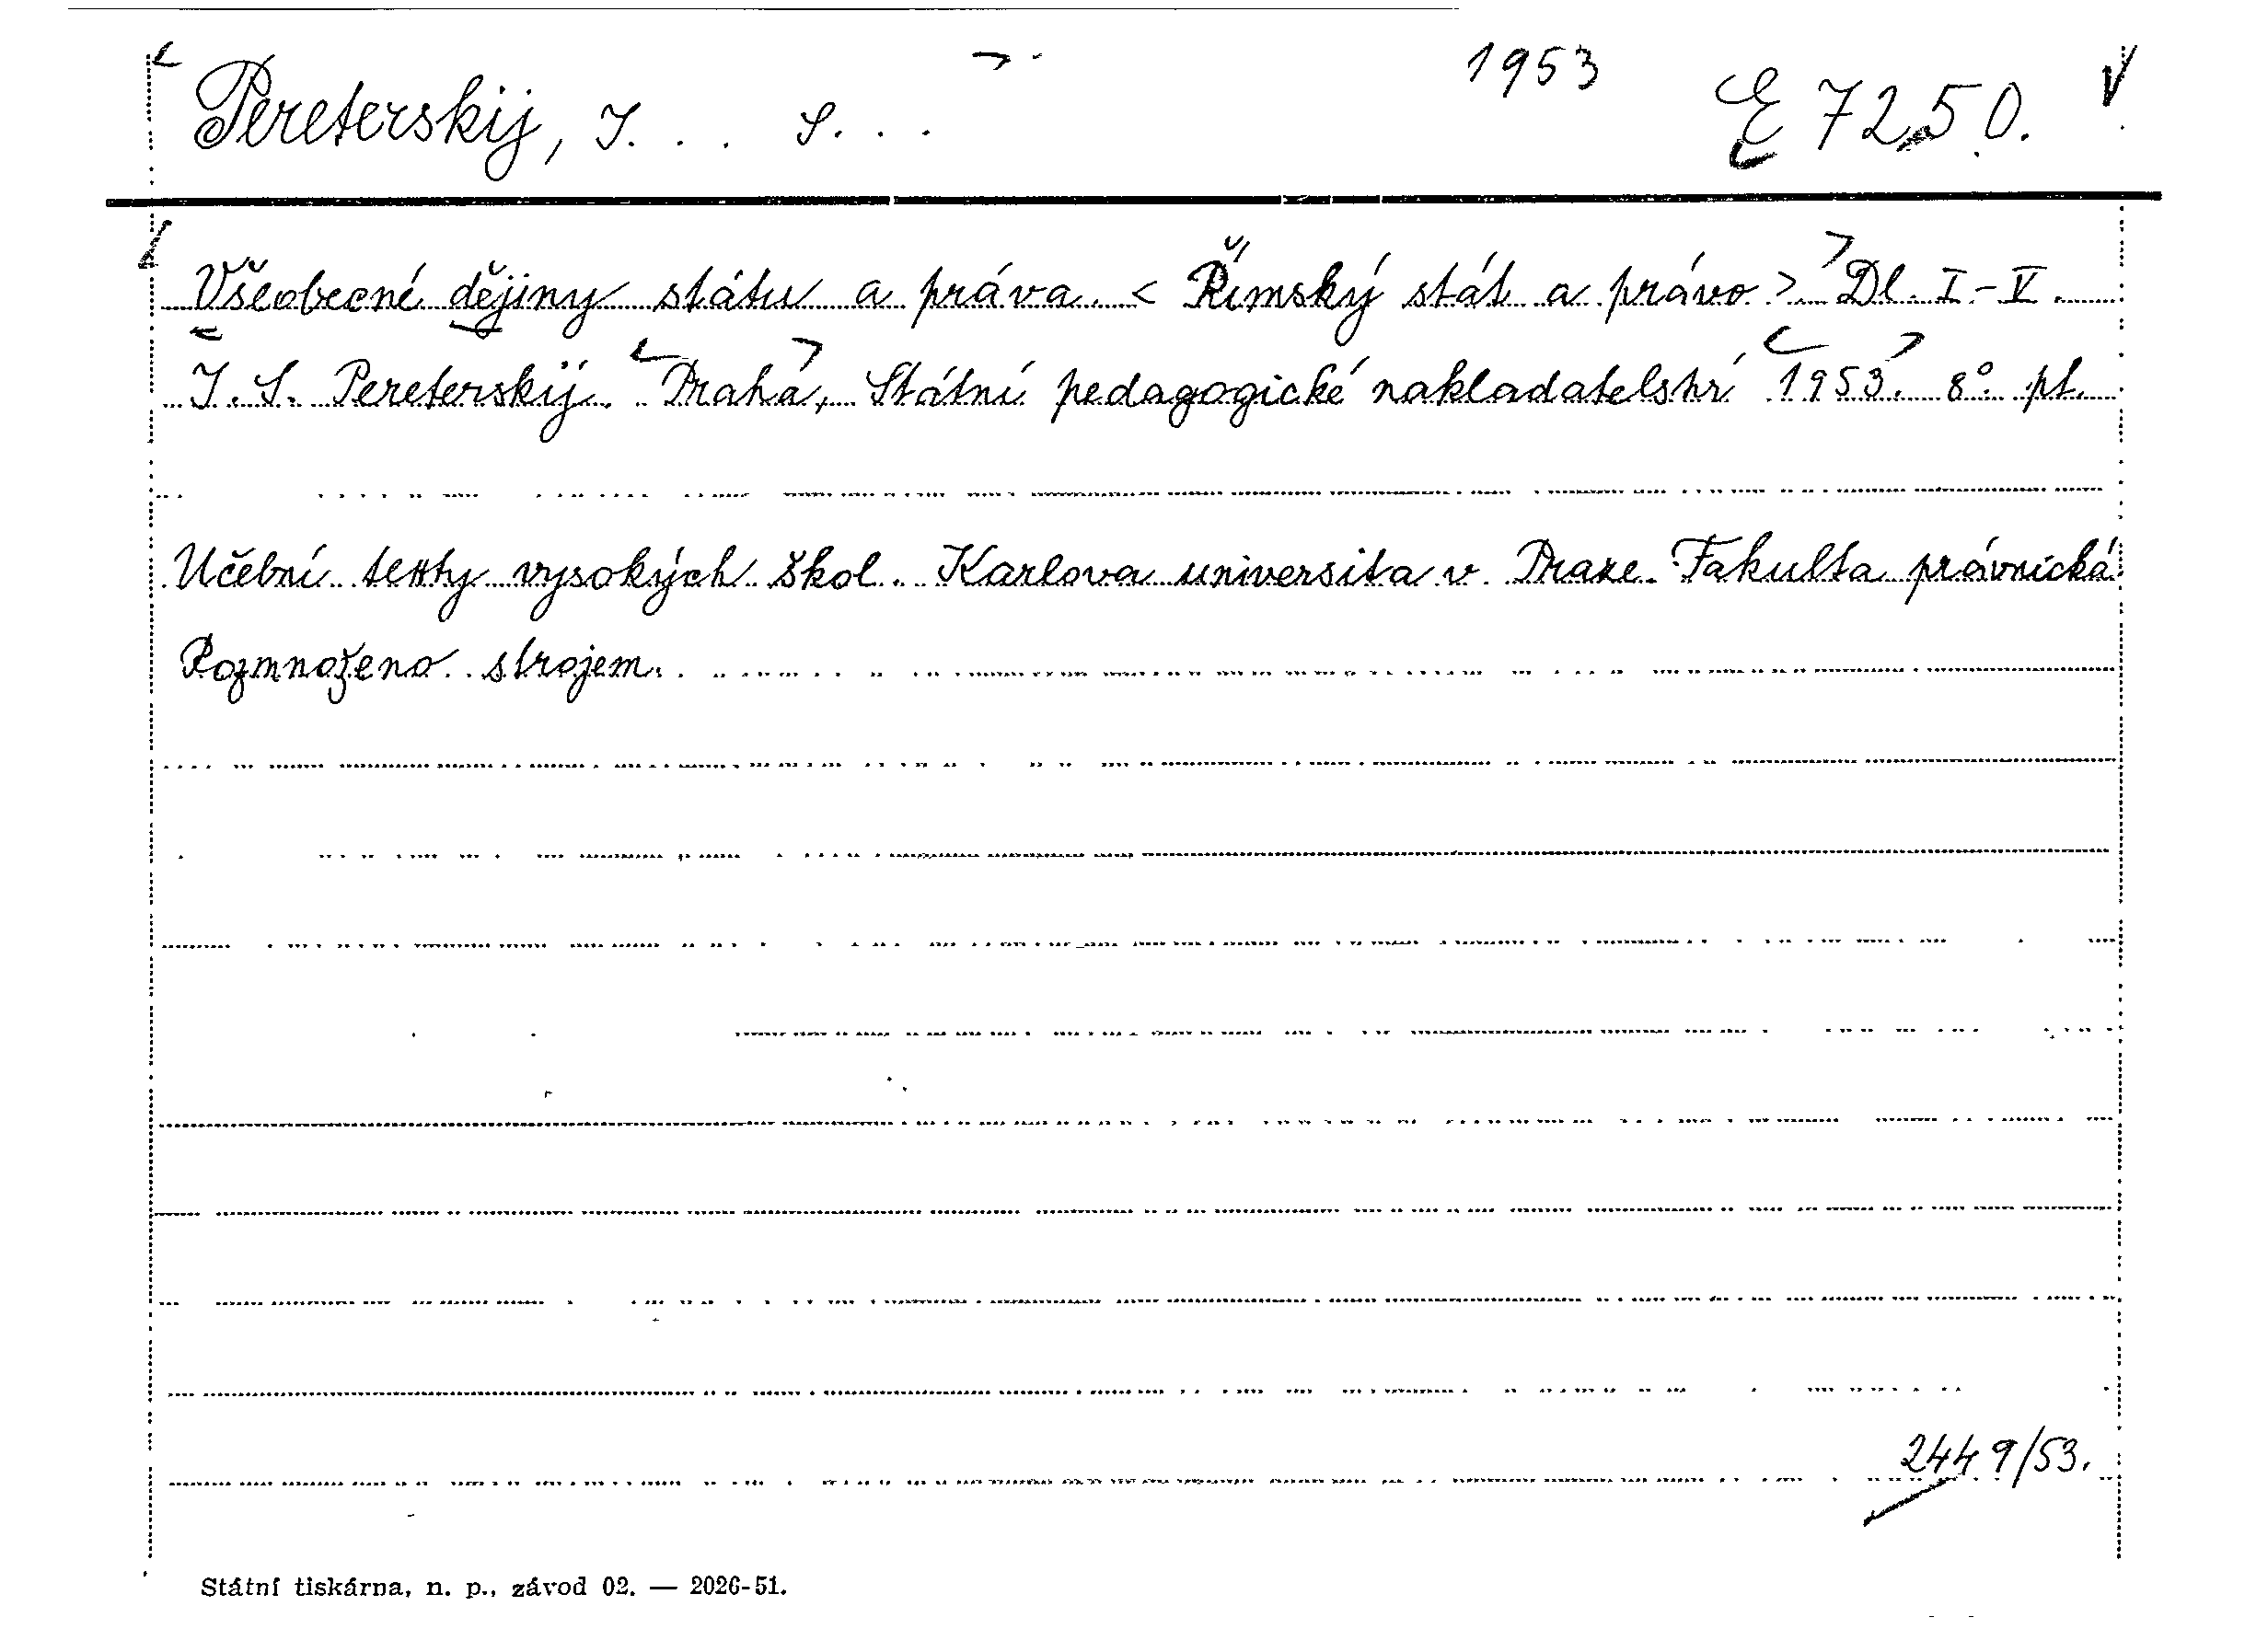 Pereterskij, I... S...
1953
E 7250.
Všeobecné dějiny státu a práva. < Římský stát a právo >. Dl. I.-V.
I. S. Pereterskij. Praha, Státní pedagogické nakladatelství 1953. 8°. pt.
Učební texty vysokých škol. Karlova universita v Praze. Fakulta právnická
Rozmnoženo strojem.
2449/53.
Státní tiskárna, n. p., závod 02. — 2026-51.